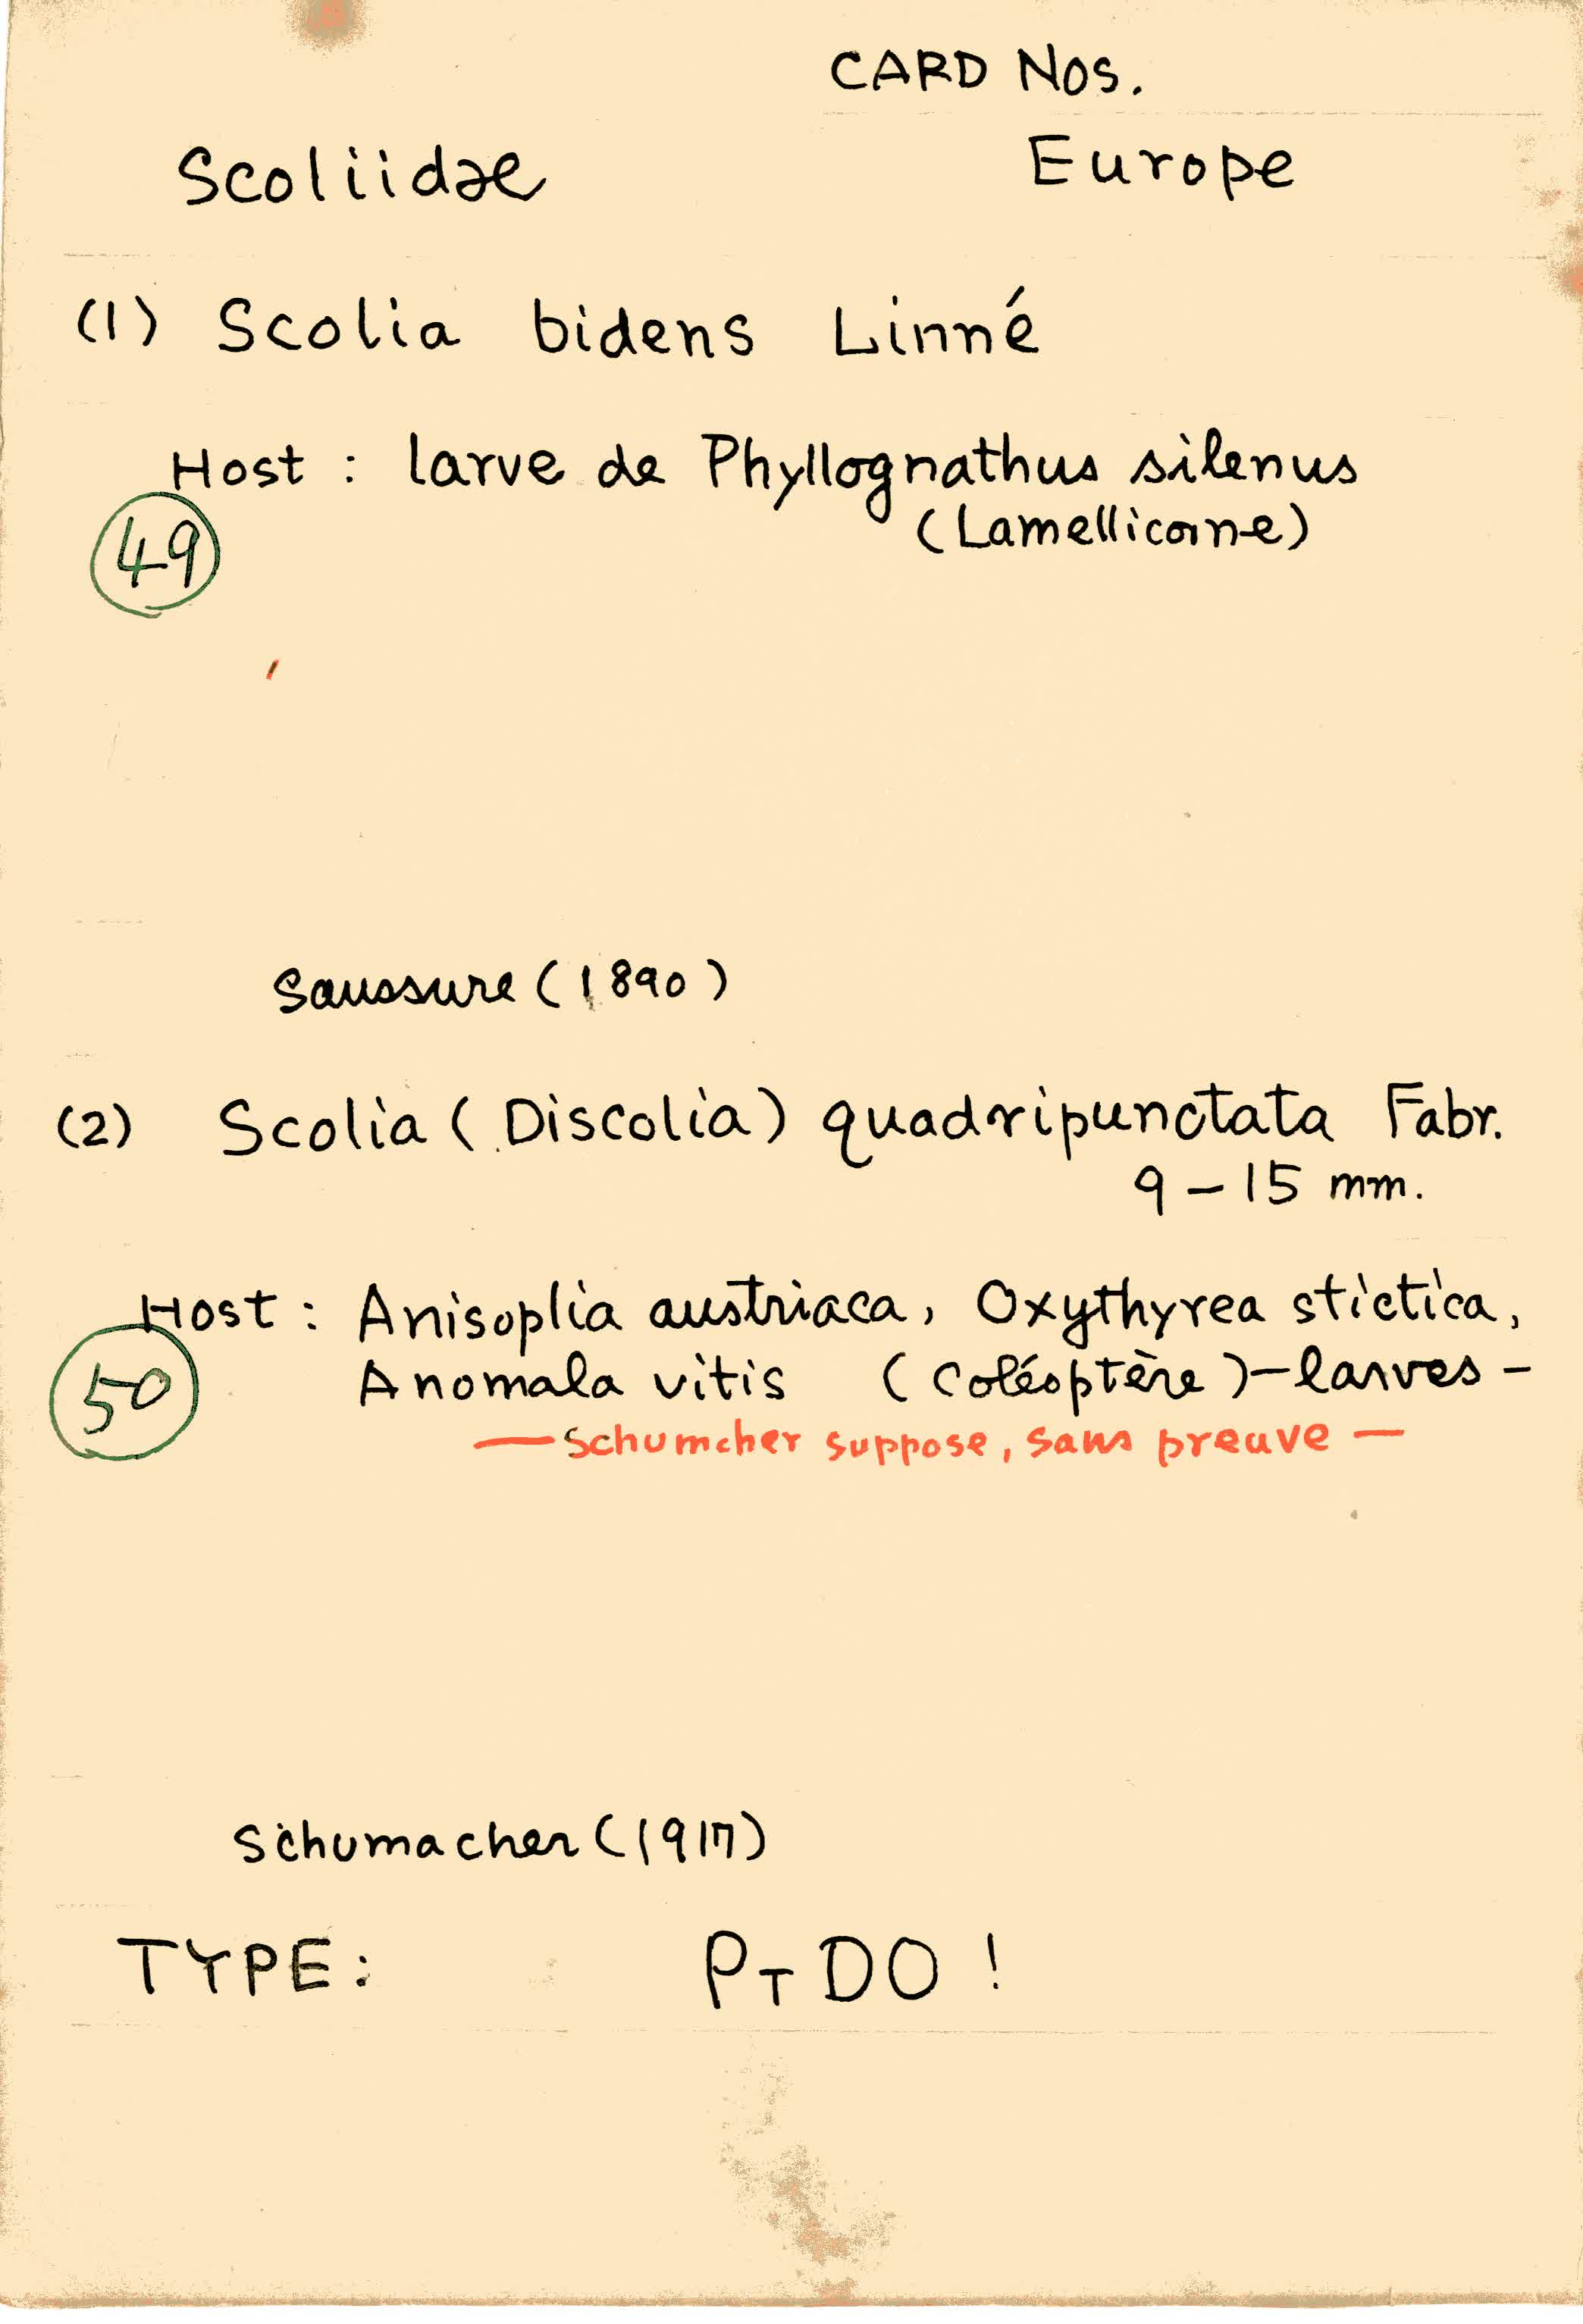 CARD NOS.
Scoliidae Europe
(1) Scolia bidens Linné
Host : larve de Phyllognathus silenus
(Lamellicorne)
49
Saussure (1890)
(2) Scolia (Discolia) quadripunctata Fabr.
9 – 15 mm.
Host : Anisoplia austriaca, Oxythyrea stictica,
50
Anomala vitis (Coléoptère) – larves –
— Schumcher suppose, sans preuve —
Schumacher (1917)
TYPE: PT DO !